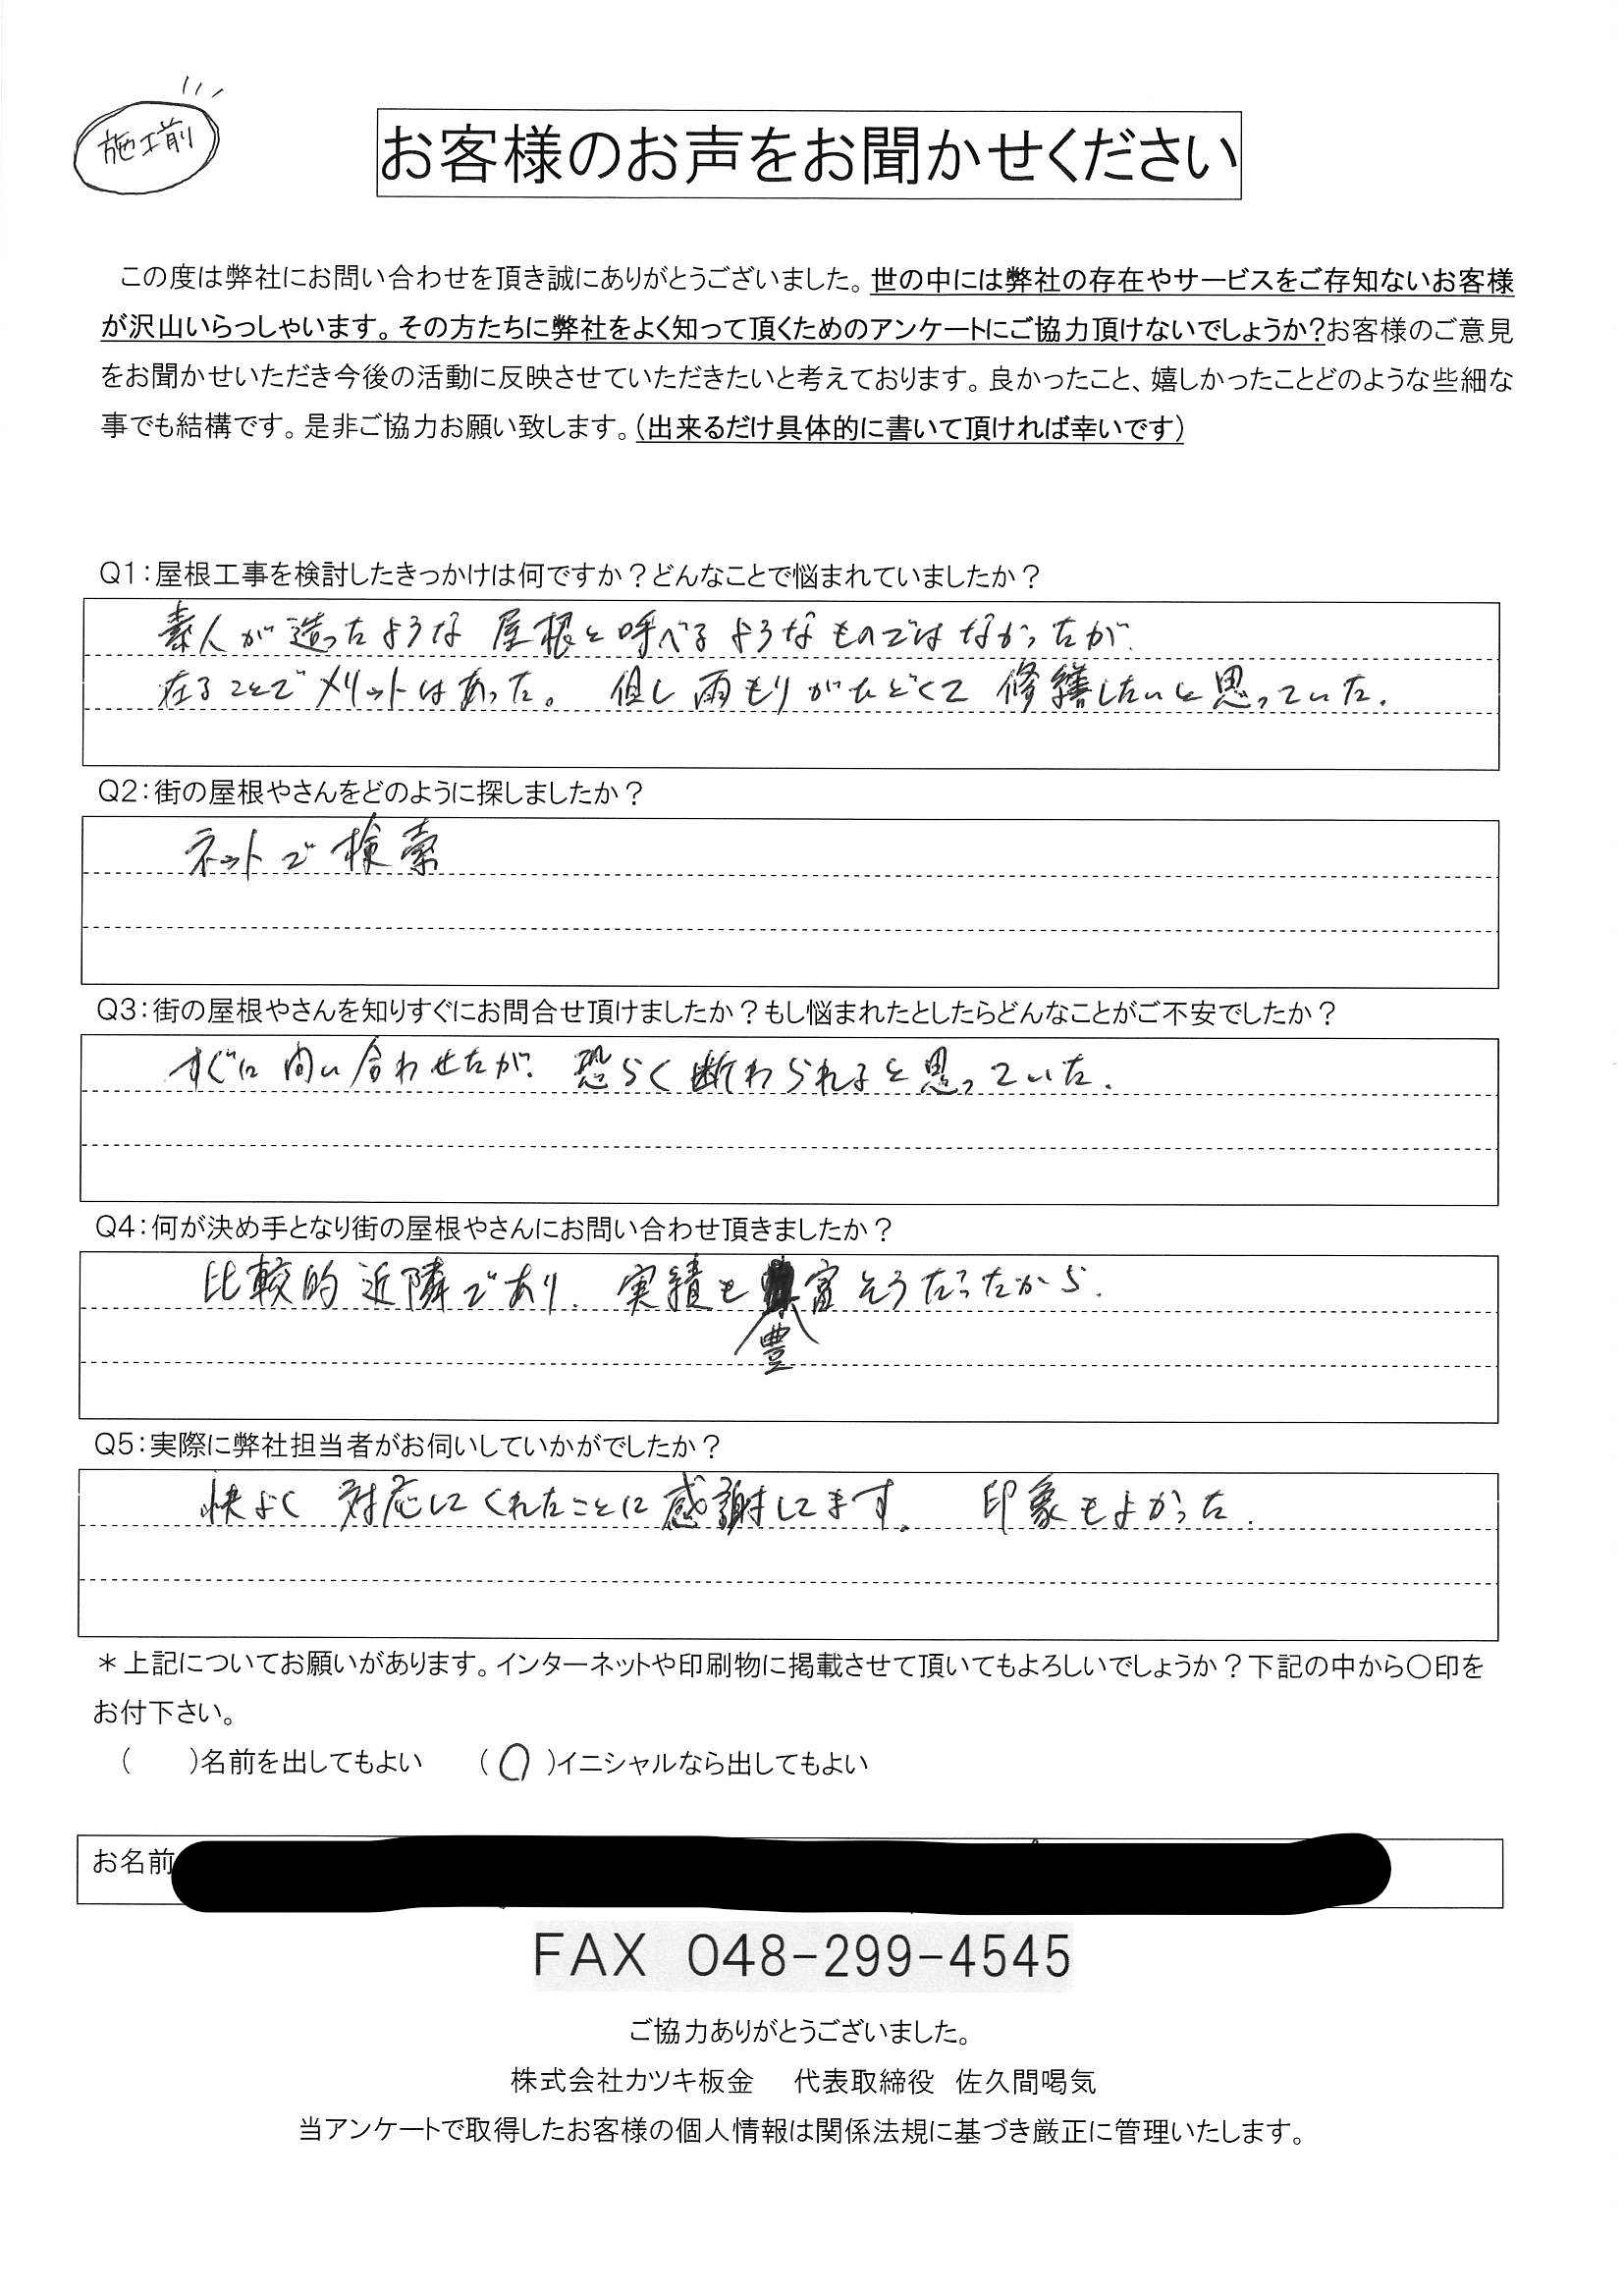 施工前
お客様のお声をお聞かせください
この度は弊社にお問い合わせを頂き誠にありがとうございました。世の中には弊社の存在やサービスをご存知ないお客様
が沢山いらっしゃいます。その方たちに弊社をよく知って頂くためのアンケートにご協力頂けないでしょうか?お客様のご意見
をお聞かせいただき今後の活動に反映させていただきたいと考えております。良かったこと、嬉しかったことどのような些細な
事でも結構です。是非ご協力お願い致します。(出来るだけ具体的に書いて頂ければ幸いです)
Q1:屋根工事を検討したきっかけは何ですか?どんなことで悩まれていましたか?
素人が造ったような 屋根と呼べるようなものではなかったが、
在ることでメリットはあった。 但し雨もりがひどくて 修繕したいと思っていた.
Q2:街の屋根やさんをどのように探しましたか?
ネットで検索
Q3:街の屋根やさんを知りすぐにお問合せ頂けましたか?もし悩まれたとしたらどんなことがご不安でしたか?
すぐに問い合わせたが、恐らく断わられると思っていた.
Q4:何が決め手となり街の屋根やさんにお問い合わせ頂きましたか?
比較的近隣であり、実績も富そうだったから.
豊
Q5:実際に弊社担当者がお伺いしていかがでしたか?
快よく対応してくれたことに感謝してます。 印象もよかった.
*上記についてお願いがあります。インターネットや印刷物に掲載させて頂いてもよろしいでしょうか?下記の中から○印を
お付下さい。
( )名前を出してもよい (○)イニシャルなら出してもよい
お名前
FAX 048-299-4545
ご協力ありがとうございました。
株式会社カツキ板金 代表取締役 佐久間喝気
当アンケートで取得したお客様の個人情報は関係法規に基づき厳正に管理いたします。